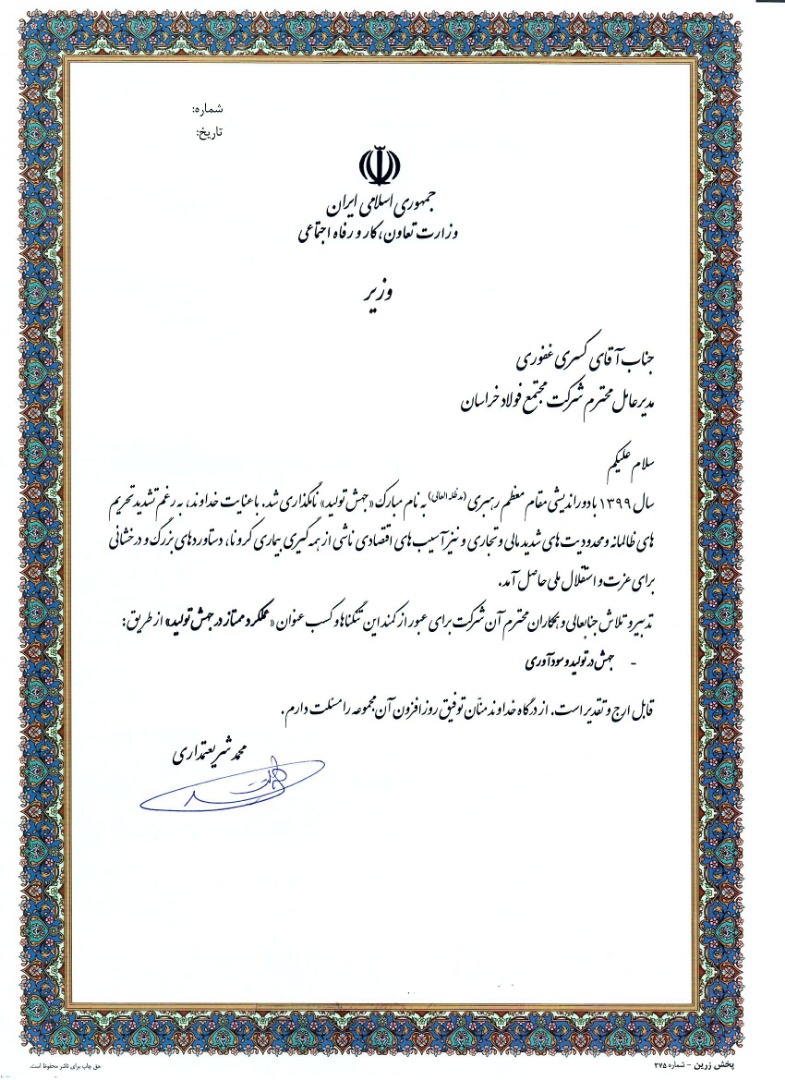 شماره:
تاریخ:
جمهوری اسلامی ایران
وزارت تعاون، کار و رفاه اجتماعی
وزیر
جناب آقای کسری غفوری
مدیرعامل محترم شرکت مجتمع فولاد خراسان
سلام علیکم
سال ۱۳۹۹ با دوراندیشی مقام معظم رهبری (مدظله العالی) به نام مبارک «جهش تولید» نامگذاری شد. با عنایت خداوند، به رغم تشدید تحریم
های ظالمانه و محدودیت های شدید مالی و تجاری و نیز آسیب های اقتصادی ناشی از همه گیری بیماری کرونا، دستاوردهای بزرگ و درخشانی
برای عزت و استقلال ملی حاصل آمد.
تدبیر و تلاش جنابعالی و همکاران محترم آن شرکت برای عبور از کمند این تنگناها و کسب عنوان «عملکرد ممتاز در جهش تولید» از طریق:
- جهش در تولید و سودآوری
قابل ارج و تقدیر است. از درگاه خداوند منّان توفیق روز افزون آن مجموعه را مسئلت دارم.
محمد شریعتمداری
پخش زرین - شماره ۲۷۵
حق چاپ برای ناشر محفوظ است.